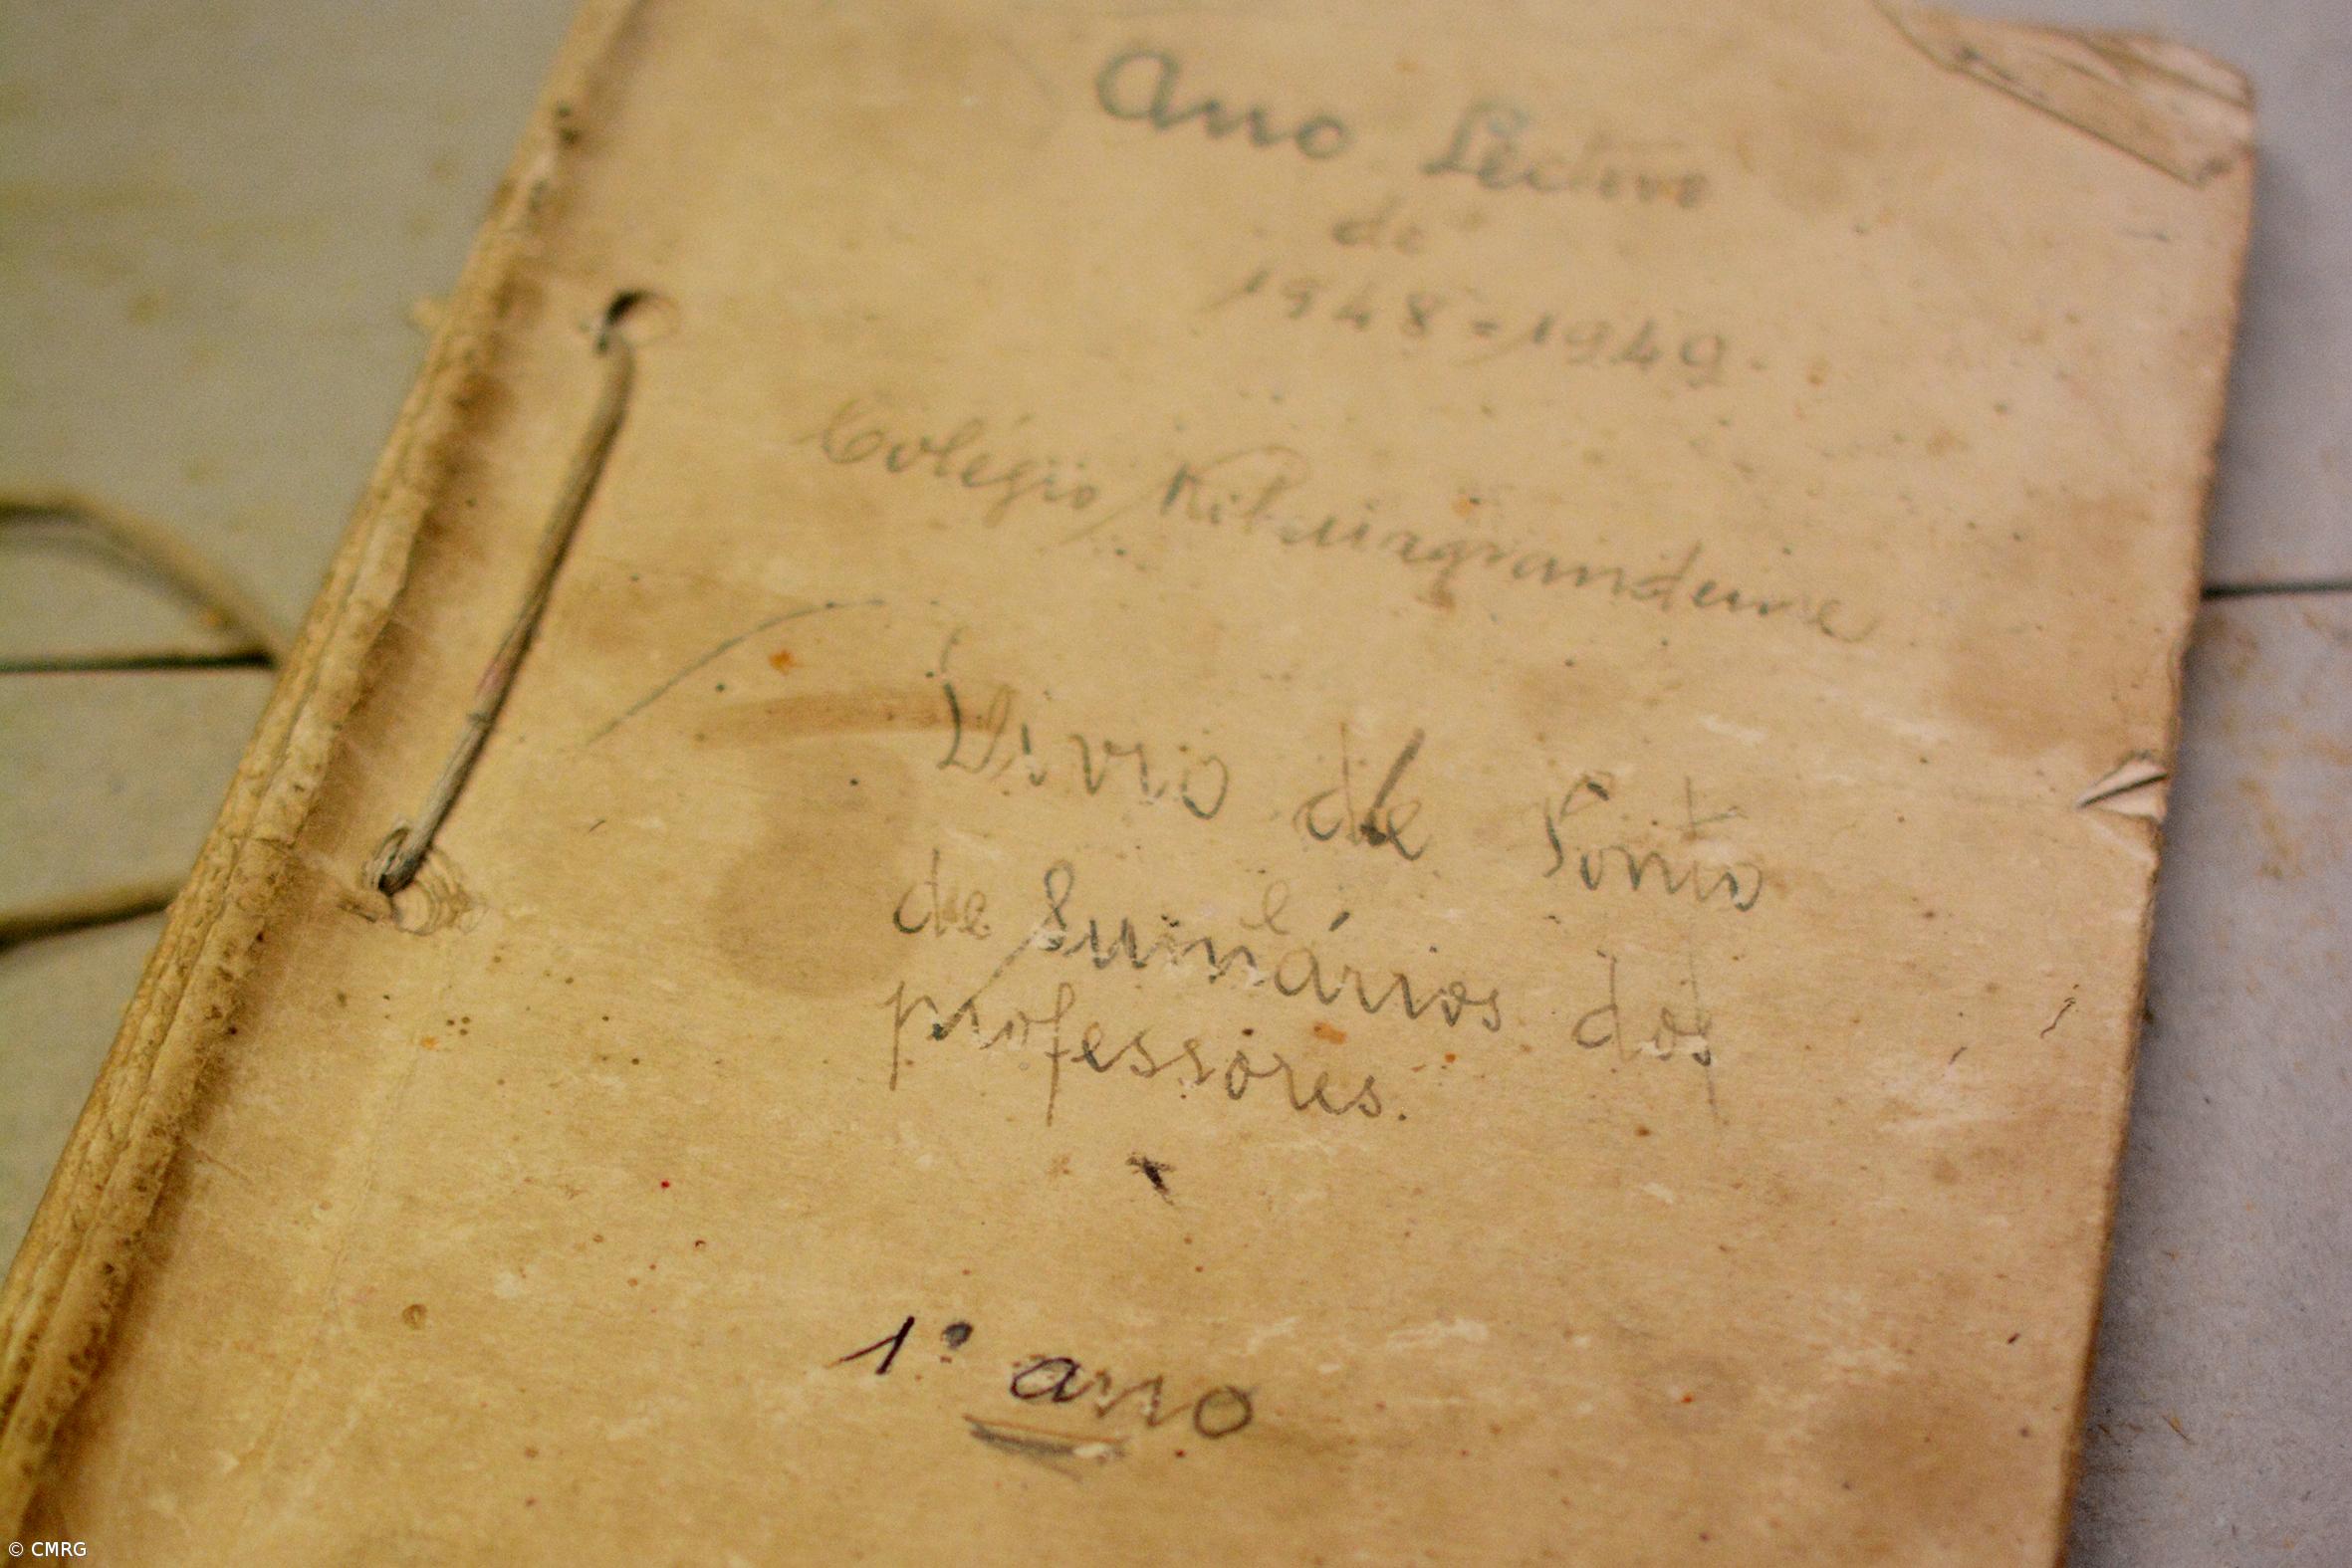 Ano Lectivo
de
1948=1949.
Colégio Ribeiragrandense
Livro de Ponto
e
de Sumários dos
professores.
1º ano
© CMRG